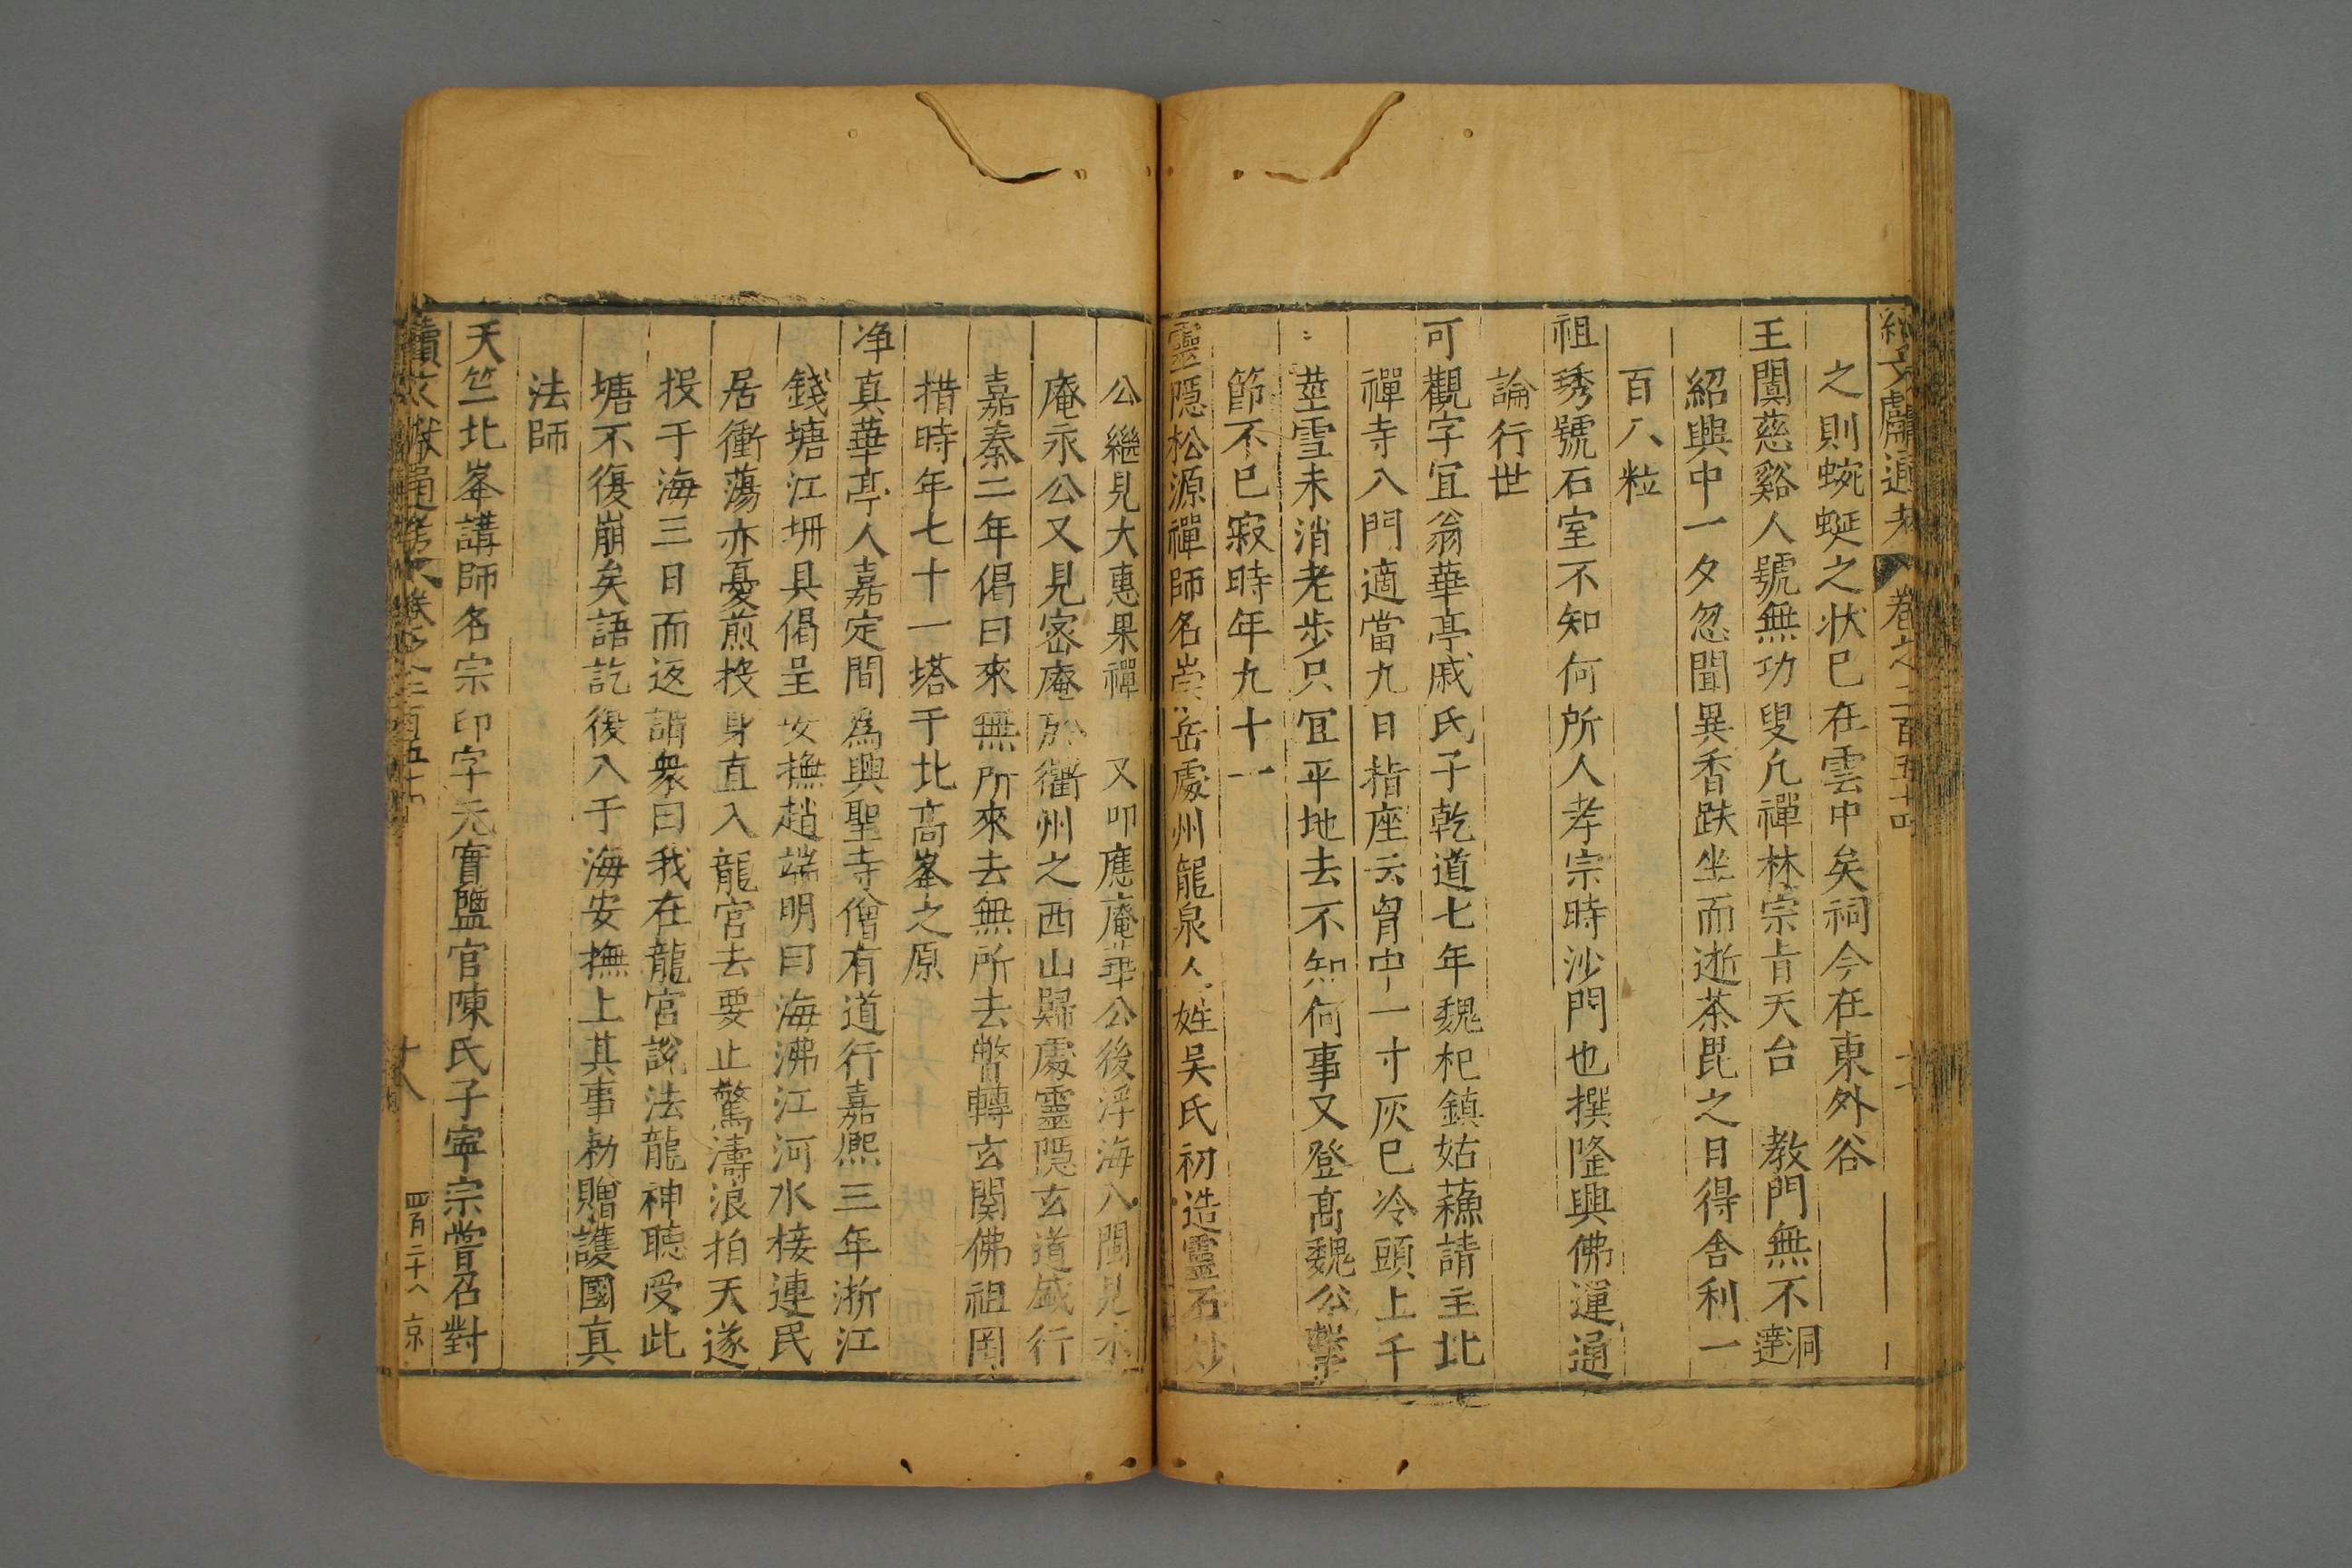 續文獻通考 卷之二百五十
之則蜿蜒之状已在雲中矣祠今在東外谷
王闐慈谿人號無功叟凡禪林宗旨天台 教門無不洞達
紹興中一夕忽聞異香趺坐而逝茶毘之日得舎利一
百八粒
祖琇號石室不知何所人孝宗時沙門也撰隆興佛運通
論行世
可觀字宜翁華亭戚氏子乾道七年魏杞鎮姑蘓請主北
禪寺入門適當九日指座云胷中一寸灰已冷頭上千
莖雪未消老歩只宜平地去不知何事又登髙魏公擊
節不已寂時年九十一
靈隠松源禪師名崇岳處州龍泉人姓吴氏初造靈石妙
公繼見大惠果禪 又叩應庵華公後浮海入閩見木
庵永公又見密庵於衢州之西山歸處靈隠玄道盛行
嘉泰二年偈曰來無所來去無所去瞥轉玄関佛祖罔
措時年七十一塔于北高峯之原
净真華亭人嘉定間為興聖寺僧有道行嘉熈三年浙江
錢塘江坍具偈呈安撫趙端明曰海沸江河水接連民
居衝蕩亦憂煎投身直入龍宮去要止驚濤浪拍天遂
投于海三日而返謂衆曰我在龍宮說法龍神聴受此
塘不復崩矣語訖復入于海安撫上其事勑贈護國真
法師
天竺北峯講師名宗印字元實鹽官陳氏子寧宗嘗召對
續文獻通考 卷之二百五十 十八 四百二十八 京